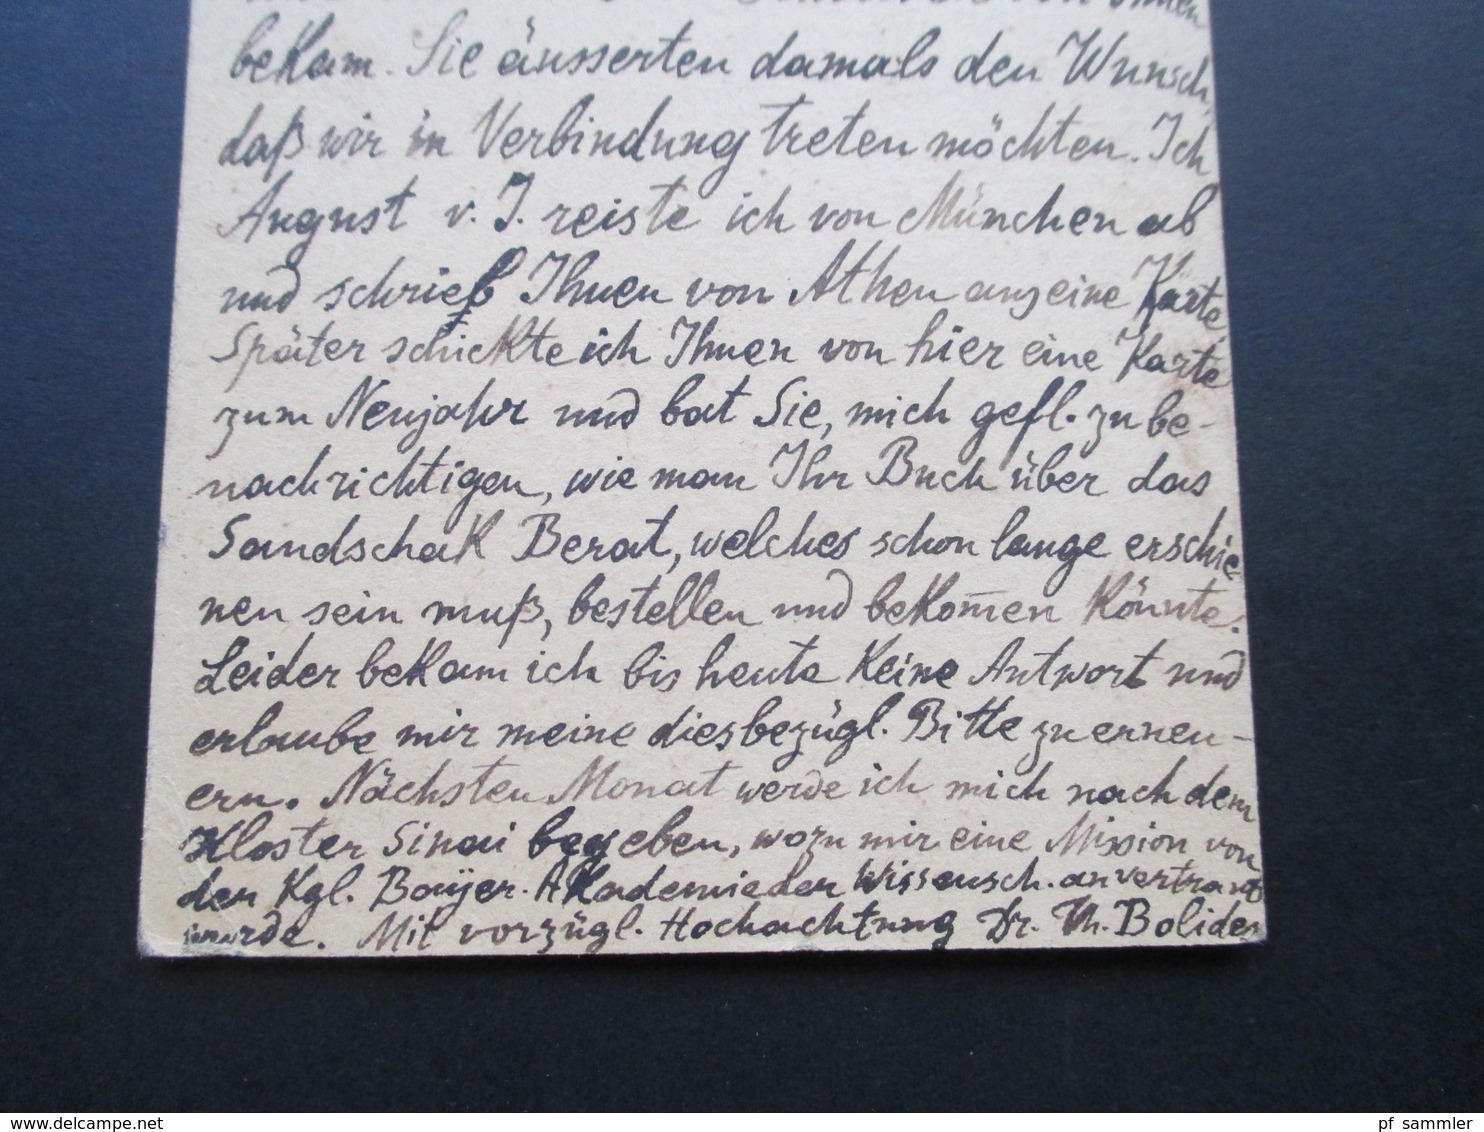 bekam. Sie äusserten damals den Wunsch,
daß wir in Verbindung treten möchten. Ich
August v. J. reiste ich von München ab
und schrieb Ihnen von Athen aus eine Karte.
Später schickte ich Ihnen von hier eine Karte
zum Neujahr und bat Sie, mich gefl. zu be-
nachrichtigen, wie man Ihr Buch über das
Sandschak Berat, welches schon lange erschie-
nen sein muß, bestellen und bekom̄en könnte.
Leider bekam ich bis heute keine Antwort und
erlaube mir meine diesbezügl. Bitte zu erneu-
ern. Nächsten Monat werde ich mich nach dem
Kloster Sinai begeben, wozu mir eine Mission von
der Kgl. Bayer. Akademie der Wissensch. anvertraut
wurde. Mit vorzügl. Hochachtung Dr. Th. Bolides
www.delcampe.net
pf_sammler